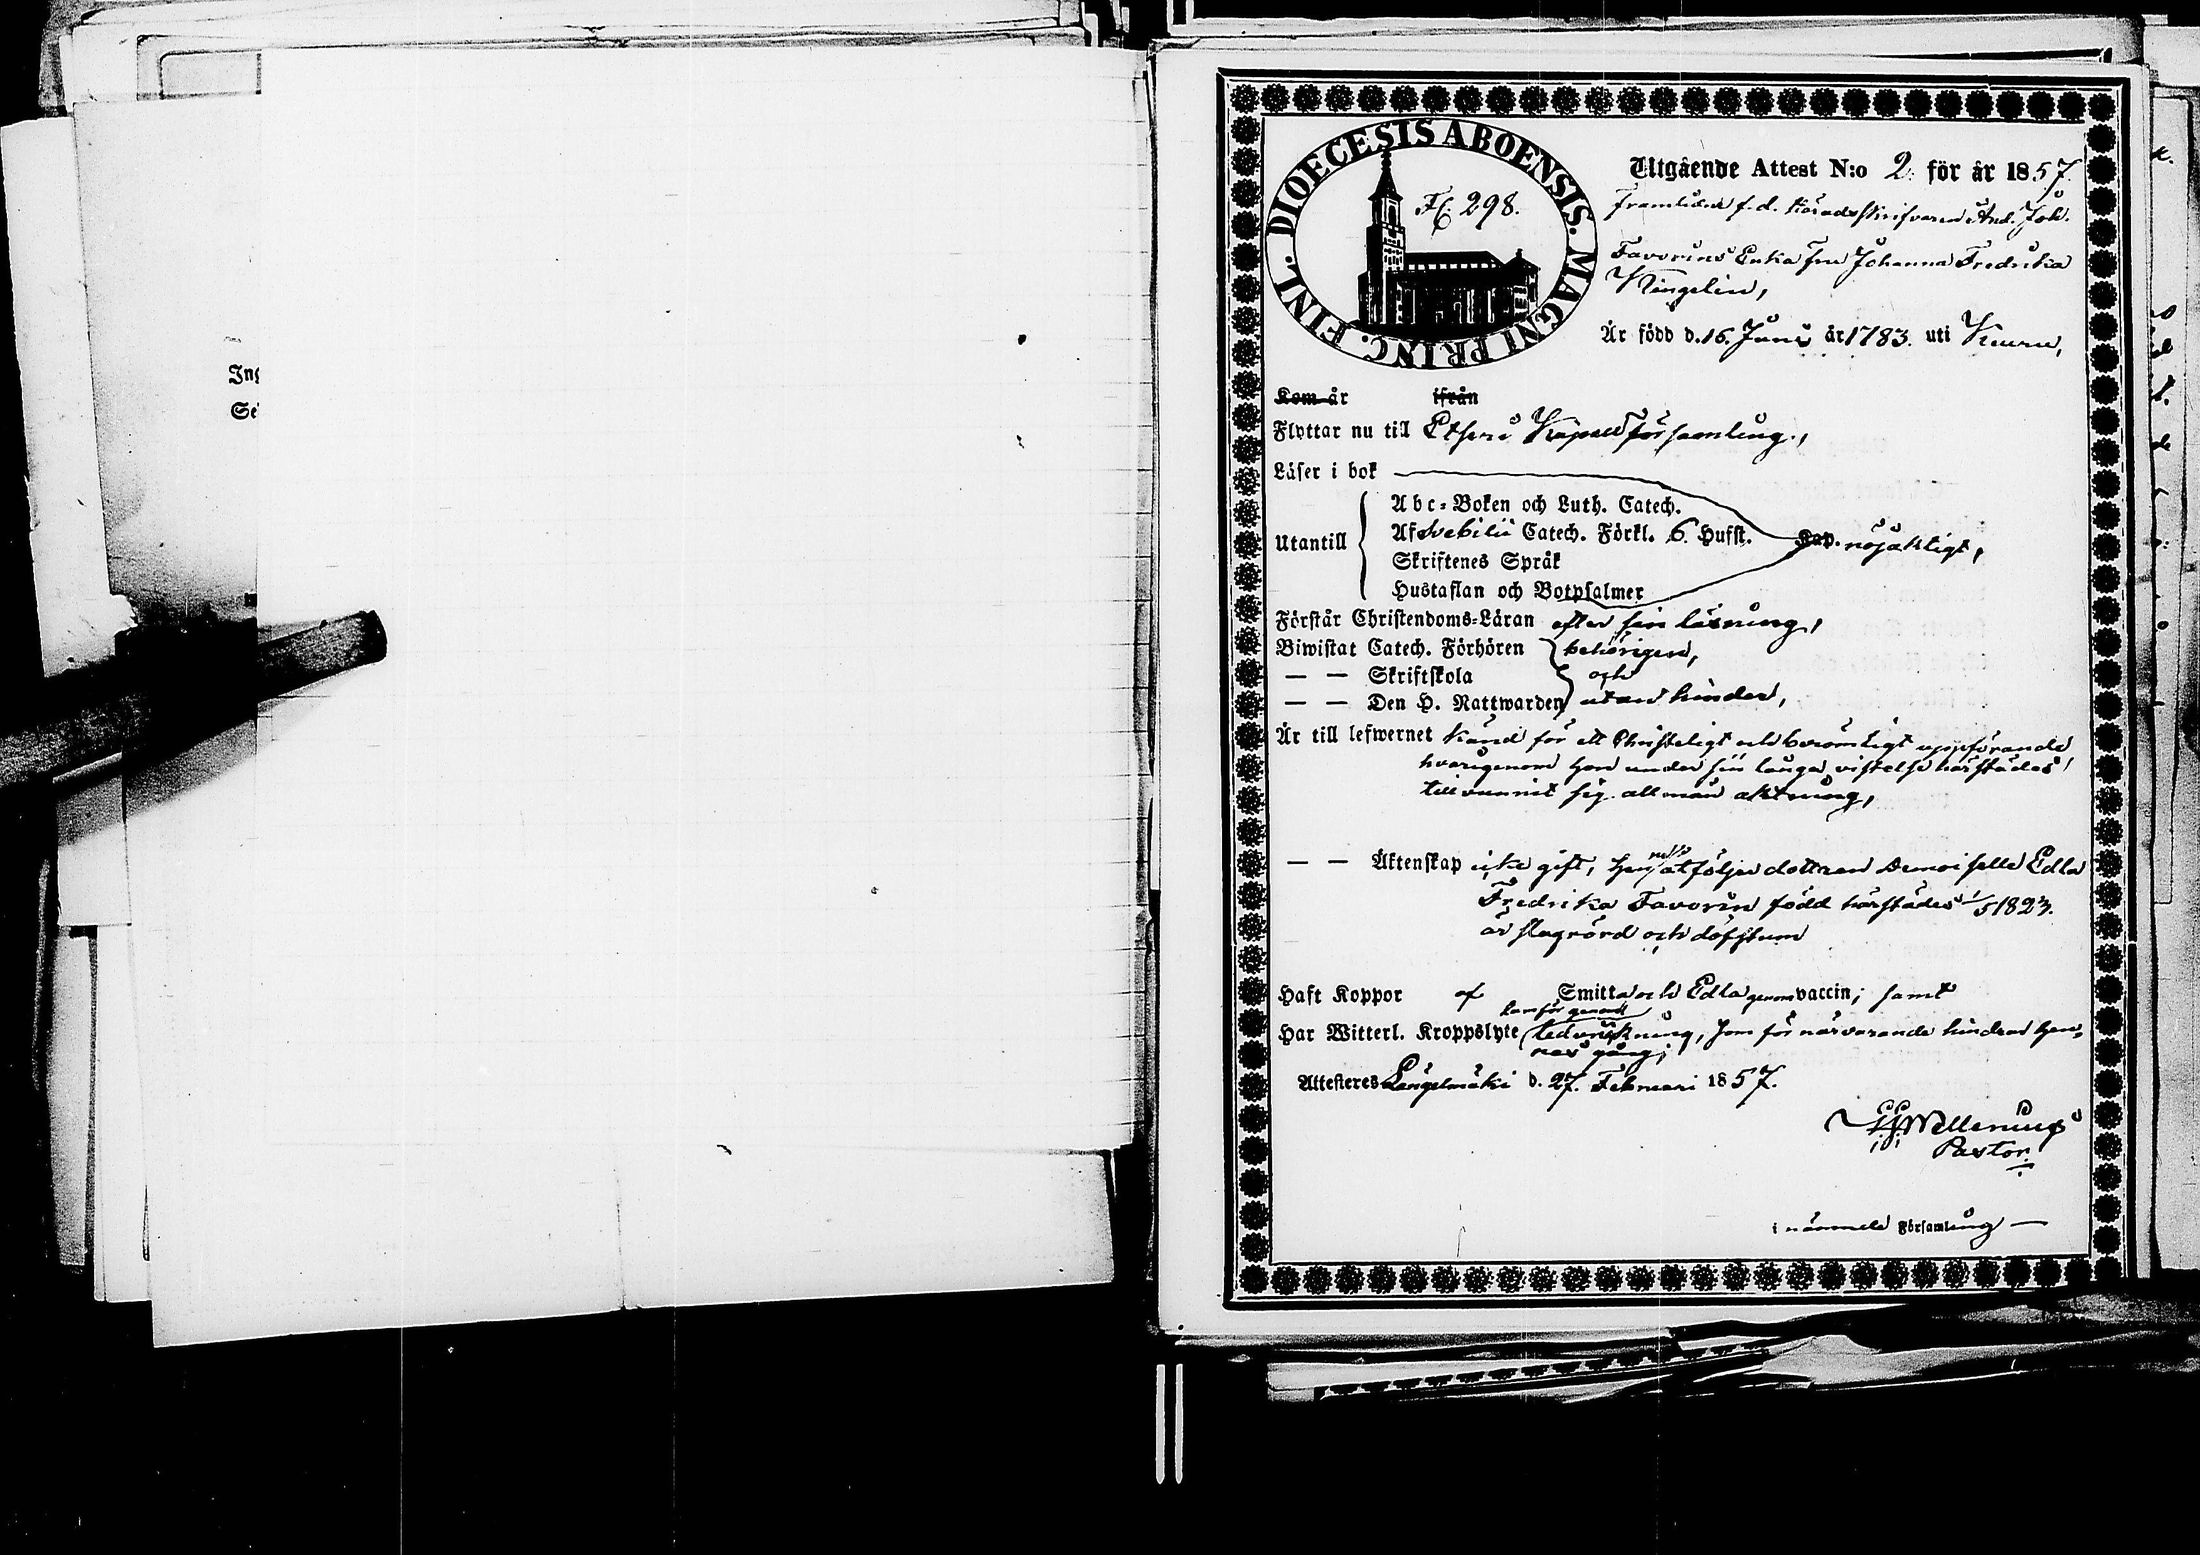 Ing
Se
DIOECESIS ABOENSIS. MAGNI PRINC. FINL.
F. 298.
Utgående Attest N:o 2. för år 1857.
Framlidne f.d. Häradsskrifvaren And. Joh.
Favorins Enka Fru Johanna Fredrika
Kingelin,
Är född d. 16. Juni år 1783. uti Kuru,
Kom år ifrån
Flyttar nu till Etseri Kapell Församling.,
Läser i bok
Utantill
Abc-Boken och Luth. Catech.
Af Svebilii Catech. Förkl. 6. Hufst. Kap. nöjaktigt,
Skriftenes Språk
Hustaflan och Botpsalmer
Förstår Christendoms-Läran efter sin läsning,
Biwistat Catech. Förhören behörigen,
— — Skriftskola och
— — Den H. Nattwarden utan hinder,
Är till lefwernet känd för ett Christeligt och berömligt uppförande
hvarigenom hon under sin långa vistelse härstädes
tillvunnit sig allmän aktning,
— — Äktenskap icke gift, Hen åtföljer dottren Demoiselle Edla
Fredrika Favorin född härstädes 1/5 1823.
är slagrörd och döfstum
Haft Koppor af Smitta och Edla genom vaccin; samt
Har Witterl. Kroppslyte ledvrickning, som för närvarande hindrar hen-
nes gång;
Attesteras Längelmäki d. 27. Februari 1857.
Wellenius
Pastor.
i nämnde Församling —